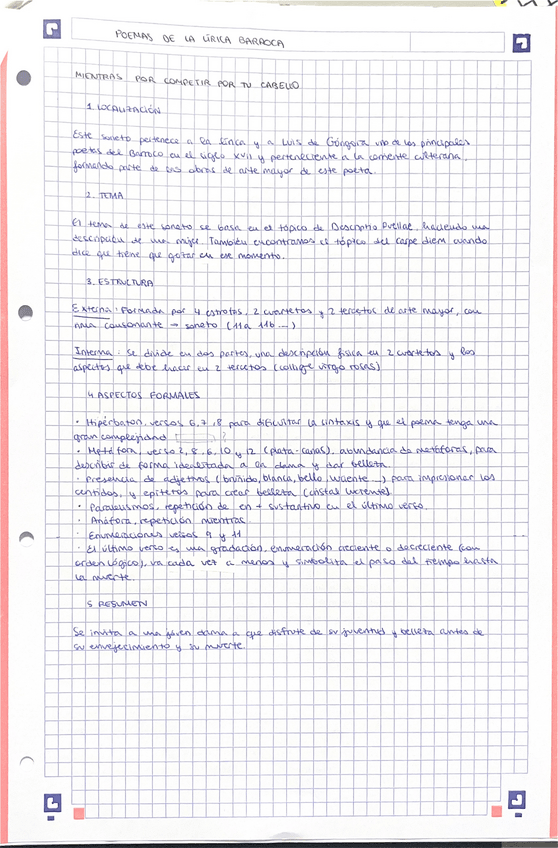 POEMAS DE LA LÍRICA BARROCA
MIENTRAS POR COMPETIR POR TU CABELLO
1. LOCALIZACIÓN
Este soneto pertenece a la lírica y a Luis de Góngora uno de los principales
poetas del Barroco en el siglo XVII y perteneciente a la corriente culterana,
formando parte de las obras de arte mayor de este poeta.
2. TEMA
El tema de este soneto se basa en el tópico de Descriptio Puellae, haciendo una
descripción de una mujer. También encontramos el tópico del carpe diem cuando
dice que tiene que gozar en ese momento.
3. ESTRUCTURA
Externa: Formada por 4 estrofas, 2 cuartetos y 2 tercetos de arte mayor, con
rima consonante → soneto (11a 11b ...)
Interna: Se divide en dos partes, una descripción física en 2 cuartetos y los
aspectos que debe hacer en 2 tercetos (collige virgo rosas)
4 ASPECTOS FORMALES
· Hipérbaton, versos 6, 7, 8 para dificultar la sintaxis y que el poema tenga una
gran complejidad
· Metáfora, verso 2, 8, 6, 10 y 12 (plata-canas), abundancia de metáforas, para
describir de forma idealizada a la dama y dar belleza.
· Presencia de adjetivos (bruñido, blanca, bello, luciente...) para impresionar los
sentidos, y epítetos para crear belleza (cristal luciente).
· Paralelismos, repetición de en + sustantivo en el último verso.
· Anáfora, repetición mientras
· Enumeraciones versos 9 y 11
· El último verso es una gradación, enumeración creciente o decreciente (con
orden lógico), va cada vez a menos y simboliza el paso del tiempo hasta
la muerte.
5 RESUMEN
Se invita a una joven dama a que disfrute de su juventud y belleza antes de
su envejecimiento y su muerte